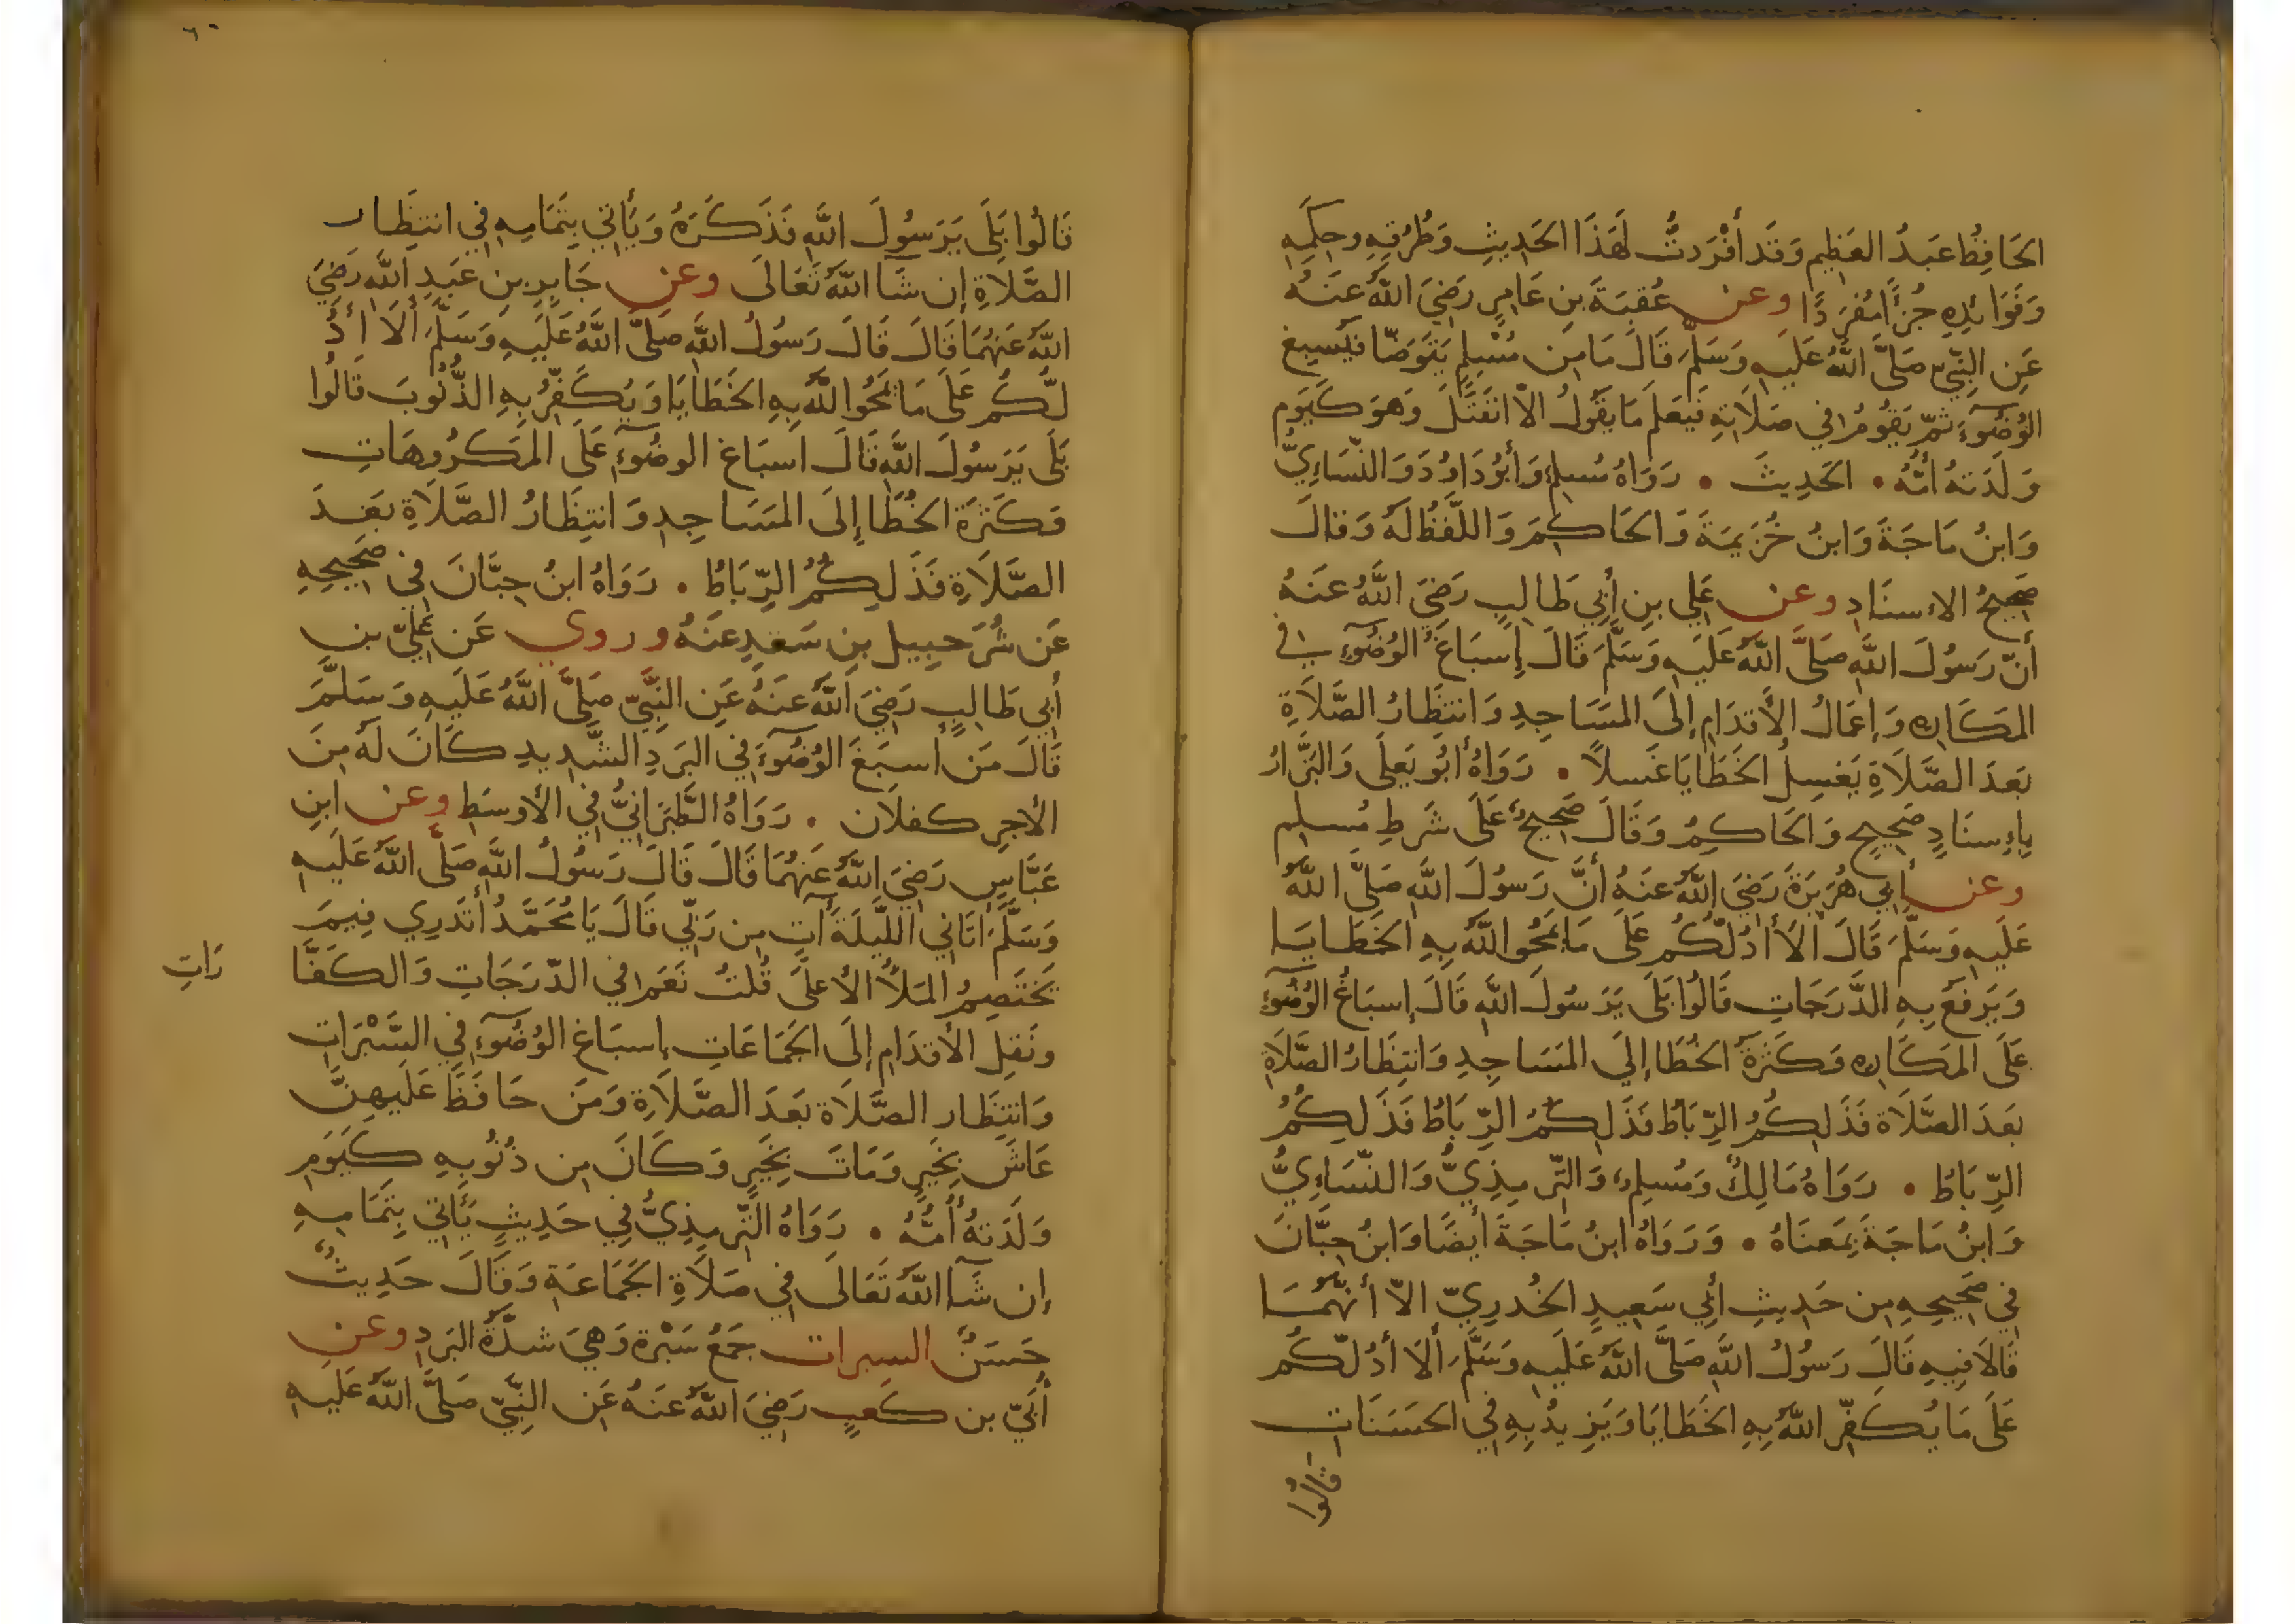 الحَافِظُ عَبدُ العَظِيمِ وَقَد أَفْرَدتُّ لِهَذَا الحَدِيثِ وَطُرُقِهِ وحِكَمِهِ
وَفَوَائدِهِ جُزءًا مُفرَدًا وعن عُقبَةَ بنِ عَامِرٍ رَضِيَ اللَّهُ عَنهُ
عَنِ النَّبِيّ صَلَّى اللَّهُ عَلَيهِ وَسَلَّمَ قَالَ مَا مِن مُسْلِمٍ يَتَوَضّا فَيُسبِغ
الوُضُوَءَ ثمّ يَقُومُ في صَلَاتِهِ فَيَعلَم مَا يَقُولُ الاّ انفَتَلَ وَهوَ كَيَوم
وَلَدَتهُ أُمُّهُ • الحَدِيثَ • رَوَاهُ مُسلِمٌ وَأَبُو دَاوُدَ وَالنّسَاءِيُّ
وَابنُ مَاجَةَ وَابنُ خُزَيمَةَ وَالحَاكِمُ وَاللَّفظُ لَهُ وَقالَ
صَحِيحُ الاءسنَادِ وعن عَلِي بنِ أَبِي طَالِبٍ رَضِيَ اللَّهُ عَنهُ
أنّ رَسُولَ اللَّهِ صَلَّى اللَّهُ عَلَيهِ وَسَلَّمَ قَالَ إِسبَاغُ الوُضُوَءِ في
المَكَارِهِ وَإِعمَالُ الأَقدَامِ إِلَى المَسَاجِدِ وَانتِظَارُ الصَّلَاةِ
بَعدَ الصَّلَاةِ يَغسِلُ الخَطَايَا غَسلاً • رَوَاهُ أَبُو يَعلَى وَالبَزَّارُ
بِاءِسنَادٍ صَحِيحٍ وَالحَاكِمُ وَقَالَ صَحِيحٌ عَلَى شَرطِ مُسلِمٍ
وعن أَبِي هُرَيرَةَ رَضِيَ اللَّهُ عَنهُ أَنَّ رَسُولَ اللَّهِ صَلَّى اللَّهُ
عَلَيهِ وَسَلَّمَ قَالَ أَلَا أَدُلّكُم عَلَى مَا يَمحُو اللَّهُ بِهِ الخَطَايَا
وَيَرفَعُ بِهِ الدَّرَجَاتِ قَالُوا بَلَى يَرَسُولَ اللَّهِ قَالَ إِسبَاغُ الوُضُوَءِ
عَلَى المَكَارِهِ وَكَثرَةُ الخُطَا إِلَى المَسَاجِدِ وَانتِظَارُ الصَّلَاةِ
بَعدَ الصَّلَاة فَذَلِكُمُ الرِّبَاطُ فَذَلِكُمُ الرِّبَاطُ فَذَلِكُمُ
الرِّبَاطُ • رَوَاهُ مَالِكٌ وَمُسلِمٌ وَالتِّرمِذِيُّ وَالنّسَاءِيُّ
وَابنُ مَاجَةَ بِمَعنَاهُ • وَرَوَاهُ ابنُ مَاجَةَ أَيضًا وَابنُ حِبَّانَ
فِي صَحِيحِهِ مِن حَدِيثِ أَبِي سَعِيدٍ الخُدرِيّ الاّ أَنّهُمَا
قَالَا فِيهِ قَالَ رَسُولُ اللَّهِ صَلَّى اللَّهُ عَلَيهِ وَسَلَّمَ أَلَا أَدُلّكُم
عَلَى مَا يُكَفِّرُ اللَّهُ بِهِ الخَطَايَا وَيَزِيدُ بِهِ فِي الحَسَنَاتِ
قَالُوا
٦٠
قَالُوا بَلَى يَرَسُولَ اللَّهِ فَذَكَرَهُ وَيَأتِي بِتَمَامِهِ فِي انتِظَار
الصَّلَاةِ إِن شَآ اللَّهُ تَعَالَى وعن جَابِرِ بنِ عَبدِ اللَّه رَضِيَ
اللَّهُ عَنهُمَا قَالَ قَالَ رَسُولُ اللَّهِ صَلَّى اللَّهُ عَلَيهِ وَسَلَّمَ أَلَا أَدُ
لُّكُم عَلَى مَا يَمحُو اللَّهُ بِهِ الخَطَايَا وَيُكَفِّرُ بِهِ الذُّنُوبَ قَالُوا
بَلَى يَرَسُولَ اللَّهِ قَالَ اسبَاغ الوضُوَءِ عَلَى المَكرُوهَاتِ
وَكَثرَة الخُطَا إِلَى المَسَاجِدِ وَانتِظَارُ الصَّلَاةِ بَعدَ
الصَّلَاةِ فَذَلِكُمُ الرِّبَاطُ • رَوَاهُ ابنُ حِبَّانَ في صَحِيحِهِ
عَن شُرَحبِيل بنِ سَعدٍ عَنهُ وروي عَن عَلِيّ بن
أَبِي طَالِبٍ رَضِيَ اللَّهُ عَنهُ عَنِ النَّبِيّ صَلَّى اللَّهُ عَلَيهِ وَسَلَّمَ
قَالَ مَن أَسبَغَ الوُضُوَءَ فِي البَردِ الشَّدِيدِ كَانَ لَهُ مِنَ
الأَجرِ كفلَان • رَوَاهُ الطَّبَرَانِيُّ فِي الأَوسَطِ وعن ابنِ
عَبَّاسٍ رَضِيَ اللَّهُ عَنهُمَا قَالَ قَالَ رَسُولُ اللَّهِ صَلَّى اللَّهُ عَلَيهِ
وَسَلَّمَ أَتَانِي اللَّيلَةَ آتٍ مِن رَبِّي قَالَ يَا مُحَمَّدُ أَتَدرِي فِيمَ
يَختَصِمُ المَلَأُ الأَعلَى قُلتُ نَعَم فِي الدّرَجَاتِ وَالكَفَّا
رَاتِ
ونَقلِ الأَقدَامِ إِلَى الجَمَاعَاتِ إِسبَاغ الوُضُوَءِ فِي السَّبْرَاتِ
وَانتِظَار الصَّلَاة بَعدَ الصَّلَاةِ وَمَن حَافَظَ عَلَيهِنَّ
عَاشَ بِخَيرٍ وَمَاتَ بِخَيرٍ وَكَانَ مِن ذُنُوبِهِ كَيَومِ
وَلَدَتهُ أُمُّهُ • رَوَاهُ التِّرمِذِيُّ فِي حَدِيثٍ يَأتِي بِتَمَامِهِ
إن شَآ اللَّهُ تَعَالَى فِي صَلَاةِ الجَمَاعَةِ وَقَالَ حَدِيثٌ
حَسَنٌ السبرات جَمعُ سَبْرَة وَهِيَ شدَّةُ البَردِ وعن
أُبَيّ بن كَعبٍ رَضِيَ اللَّهُ عَنهُ عَنِ النَّبِيّ صَلَّى اللَّهُ عَلَيهِ